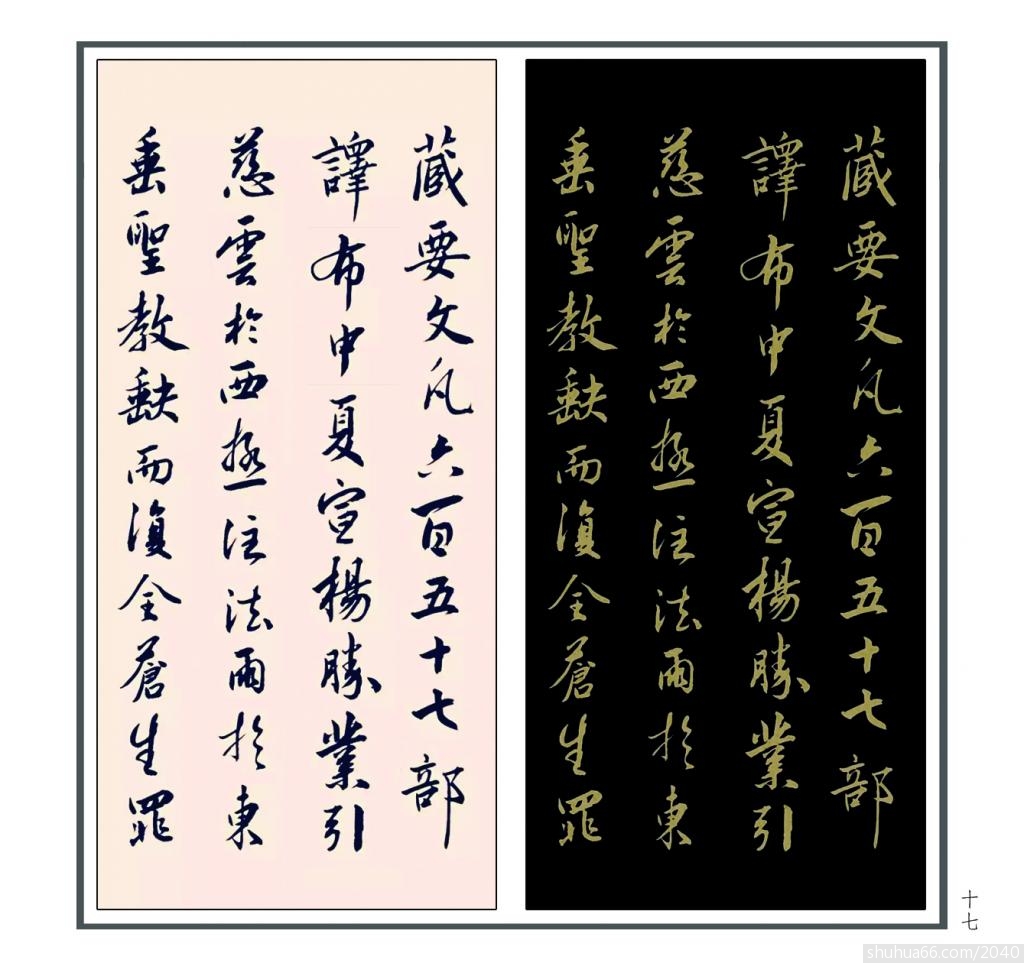 藏要文凡六百五十七部
譯布中夏宣楊勝業引
慈雲於西極注法雨於東
垂聖教缺而復全蒼生罪
藏要文凡六百五十七部
譯布中夏宣楊勝業引
慈雲於西極注法雨於東
垂聖教缺而復全蒼生罪
十七
shuhua66.com/2040